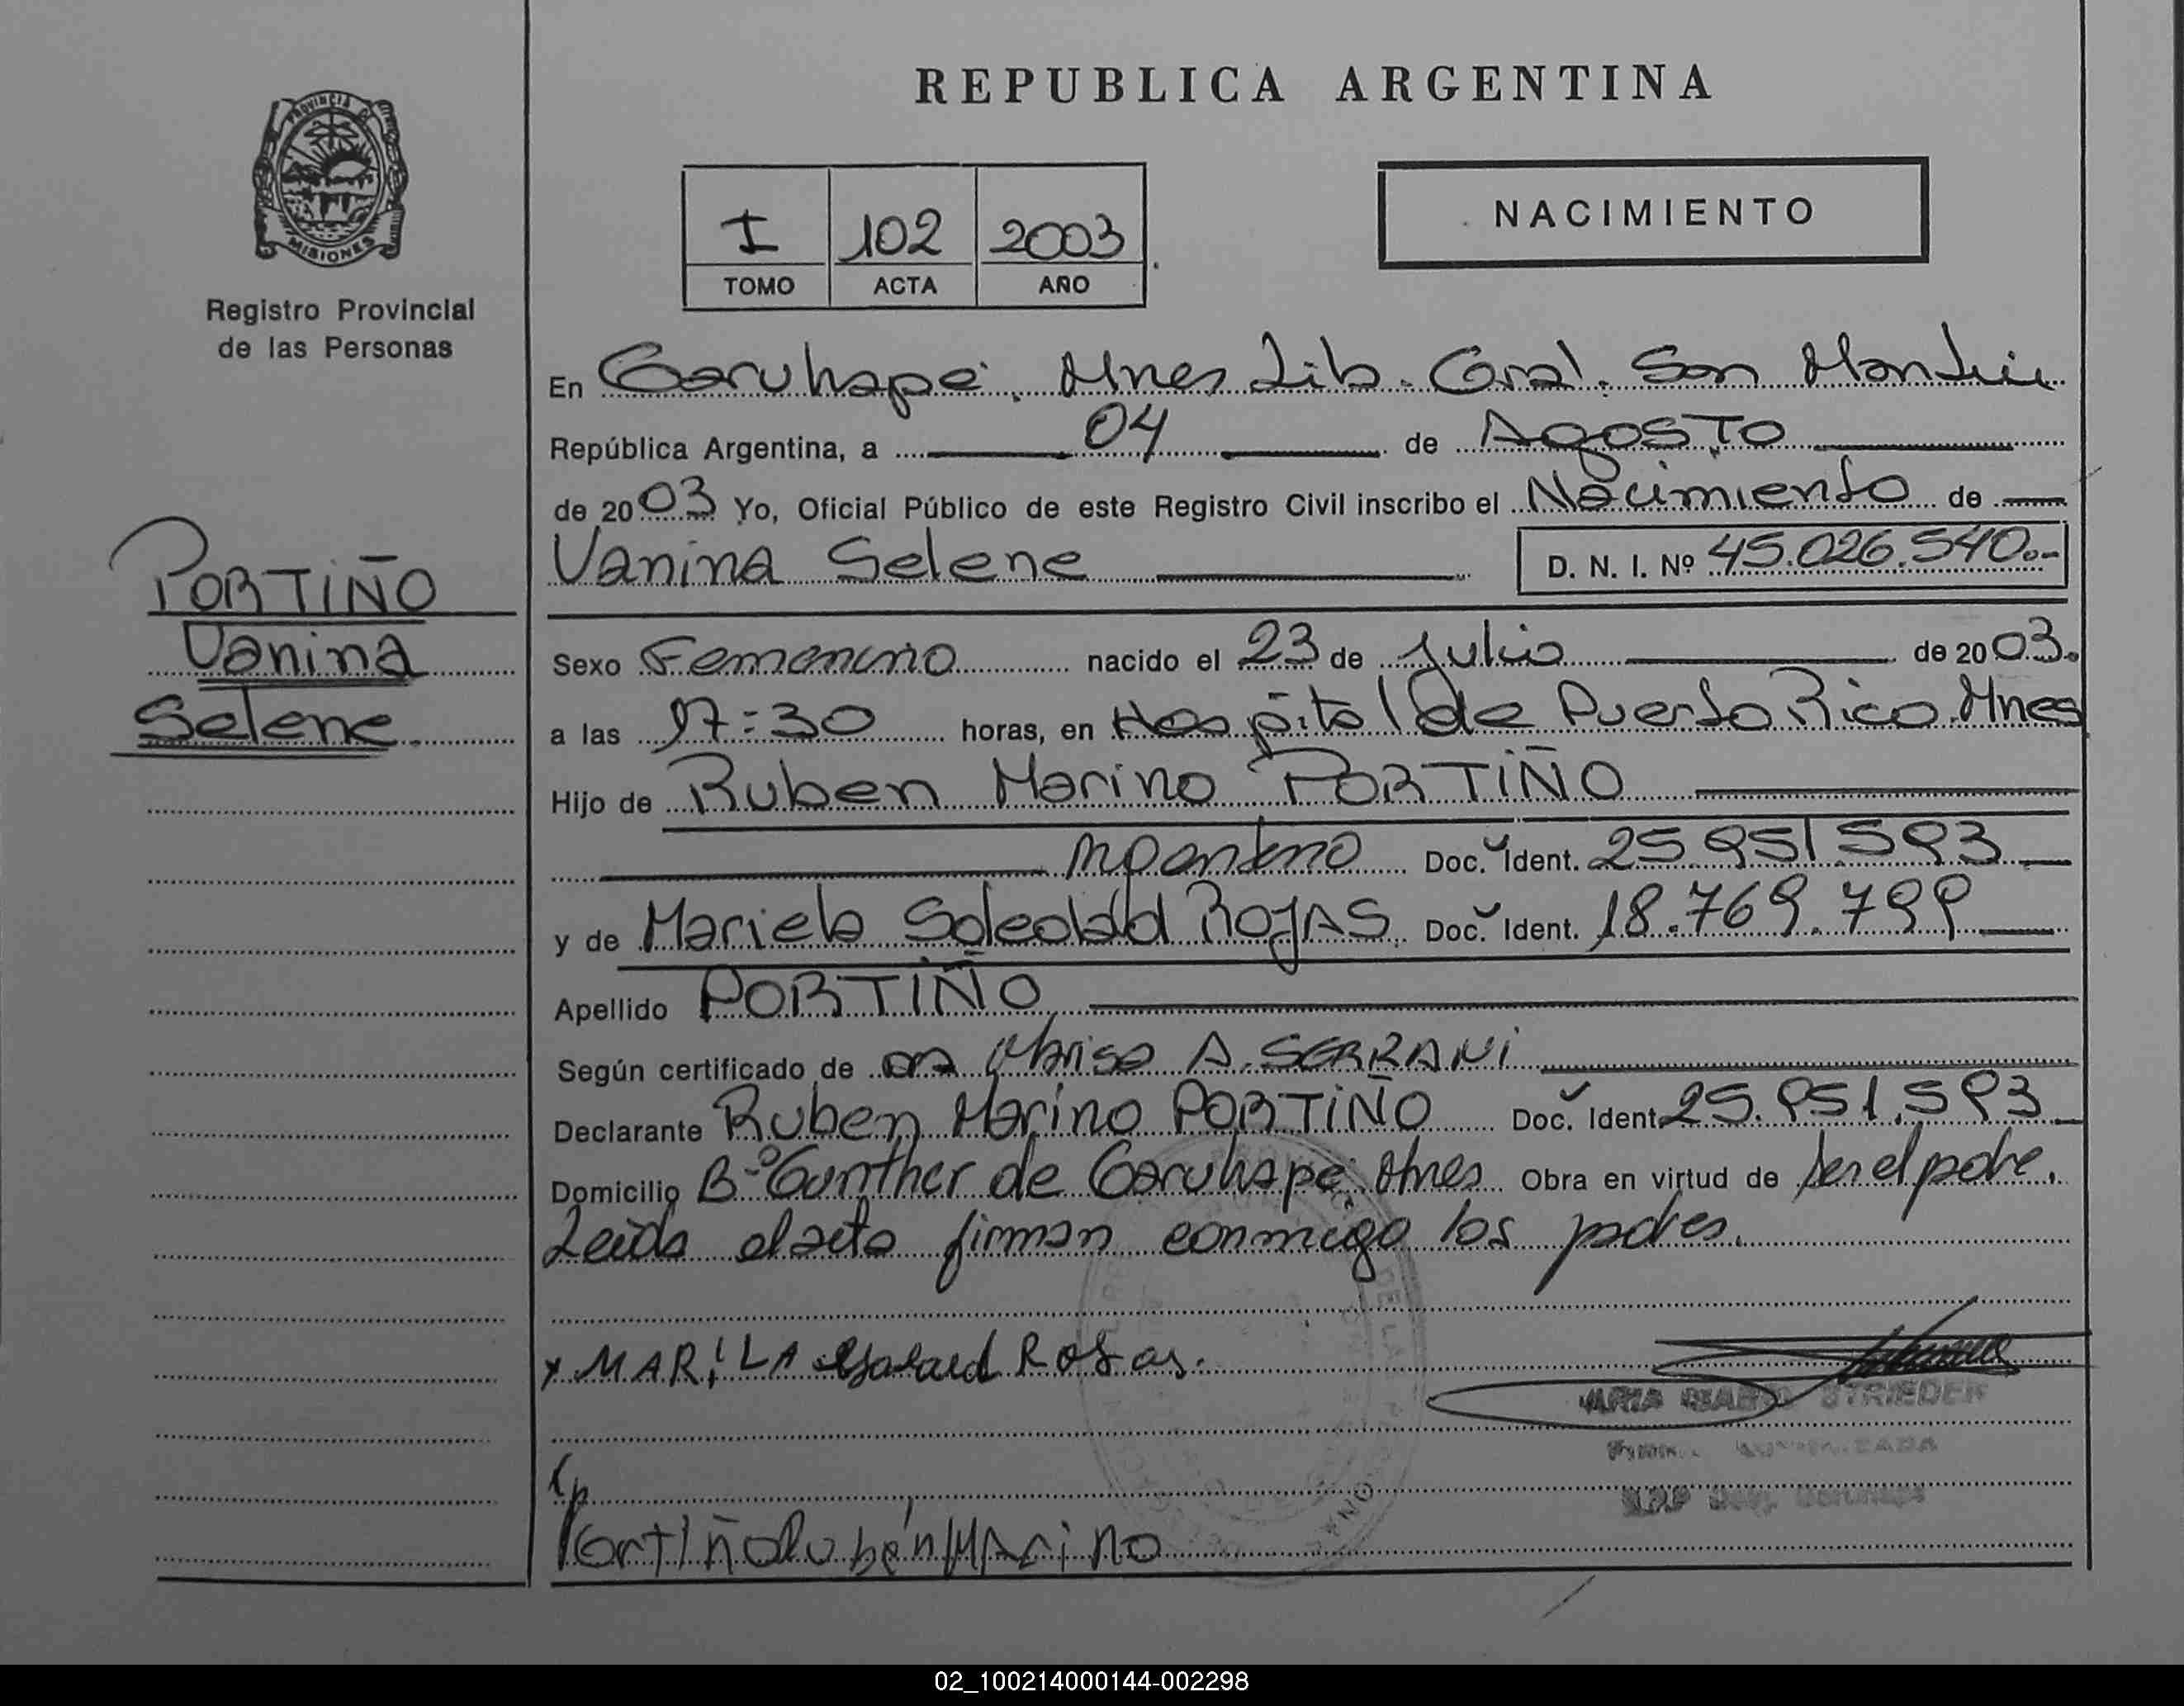 REPUBLICA ARGENTINA
PROVINCIA DE
MISIONES
Registro Provincial
de las Personas
I 102 2003
TOMO ACTA AÑO
NACIMIENTO
En Garuhapé, Mnes Lib. Gral. San Martin
República Argentina, a 04 de AgosTo
de 2003 Yo, Oficial Público de este Registro Civil inscribo el Nacimiento de
Vanina Selene D. N. I. Nº 45.026.540.-
PORTIÑO
Vanina
Selene
Sexo Femenino nacido el 23 de Julio de 2003.
a las 17:30 horas, en Hospital de Puerto Rico Mnes
Hijo de Ruben Marino PORTIÑO
Doc. Ident. 25.951.593
y de Mariela Soledad ROJAS Doc. Ident. 18.769.799
Apellido PORTIÑO
Según certificado de Marisa A. SERRANI
Declarante Ruben Marino PORTIÑO Doc. Ident. 25.951.593
Domicilio Bº Gunther de Garuhapé, Mnes Obra en virtud de ser el padre.
Leida el acta firman conmigo los padres.
x MARiLA Rojas.
STRIEDER
PortiÑo Rubén MAriNo
02_100214000144-002298